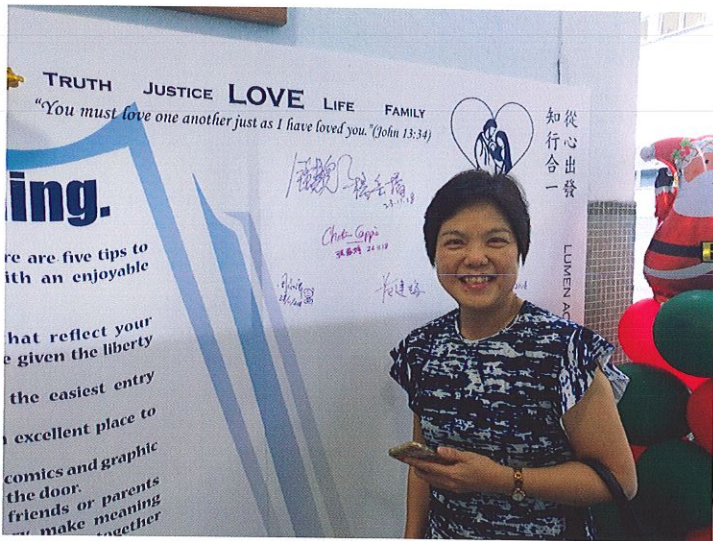 TRUTH JUSTICE LOVE LIFE FAMILY
“You must love one another just as I have loved you.”(John 13:34)
從心出發
知行合一
LUMEN AC
ing.
re are five tips to
ith an enjoyable
hat reflect your
e given the liberty
the easiest entry
excellent place to
comics and graphic
the door.
friends or parents
make meaning
together
23.11.18